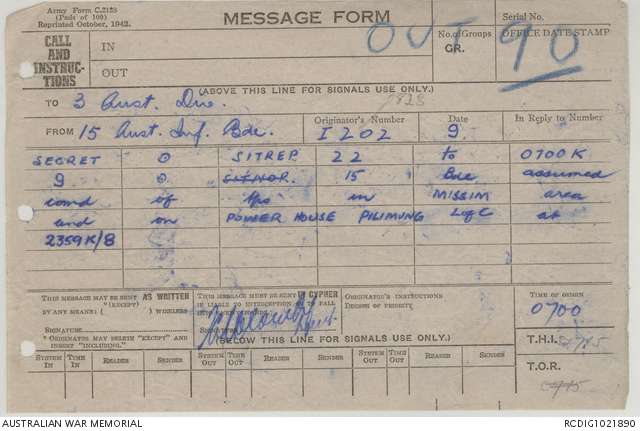 Army Form C.2128
(Pads of 100)
Reprinted October, 1942.
MESSAGE FORM
Serial No.
CALL AND INSTRUCTIONS
IN
OUT
OUT 90
No. of Groups
GR.
OFFICE DATE STAMP
(ABOVE THIS LINE FOR SIGNALS USE ONLY.)
TO 3 Aust. Div.
FROM 15 Aust. Inf. Bde.
Originator's Number
I202
Date
9.
In Reply to Number
SECRET 0 SITREP 22 to 0700K
9 0. SITNOR. 15 Bde assumed
comd of tps in MISSIM area
and on POWER HOUSE PILIMUNG LofC at
2359K/8
THIS MESSAGE MAY BE SENT AS WRITTEN
"(EXCEPT)
BY ANY MEANS ( ) WIRELESS
SIGNATURE
* ORIGINATOR MAY DELETE "EXCEPT" AND
INSERT "INCLUDING."
THIS MESSAGE MUST BE SENT IN CYPHER
IF LIABLE TO INTERCEPTION OR TO FALL
SIGNATURE
ORIGINATOR'S INSTRUCTIONS
DEGREE OF PRIORITY
TIME OF ORIGIN
0700
(BELOW THIS LINE FOR SIGNALS USE ONLY.)
T.H.I.
T.O.R.
SYSTEM IN TIME IN READER SENDER SYSTEM OUT TIME OUT READER SENDER SYSTEM OUT TIME OUT READER SENDER
AUSTRALIAN WAR MEMORIAL
RCDIG1021890